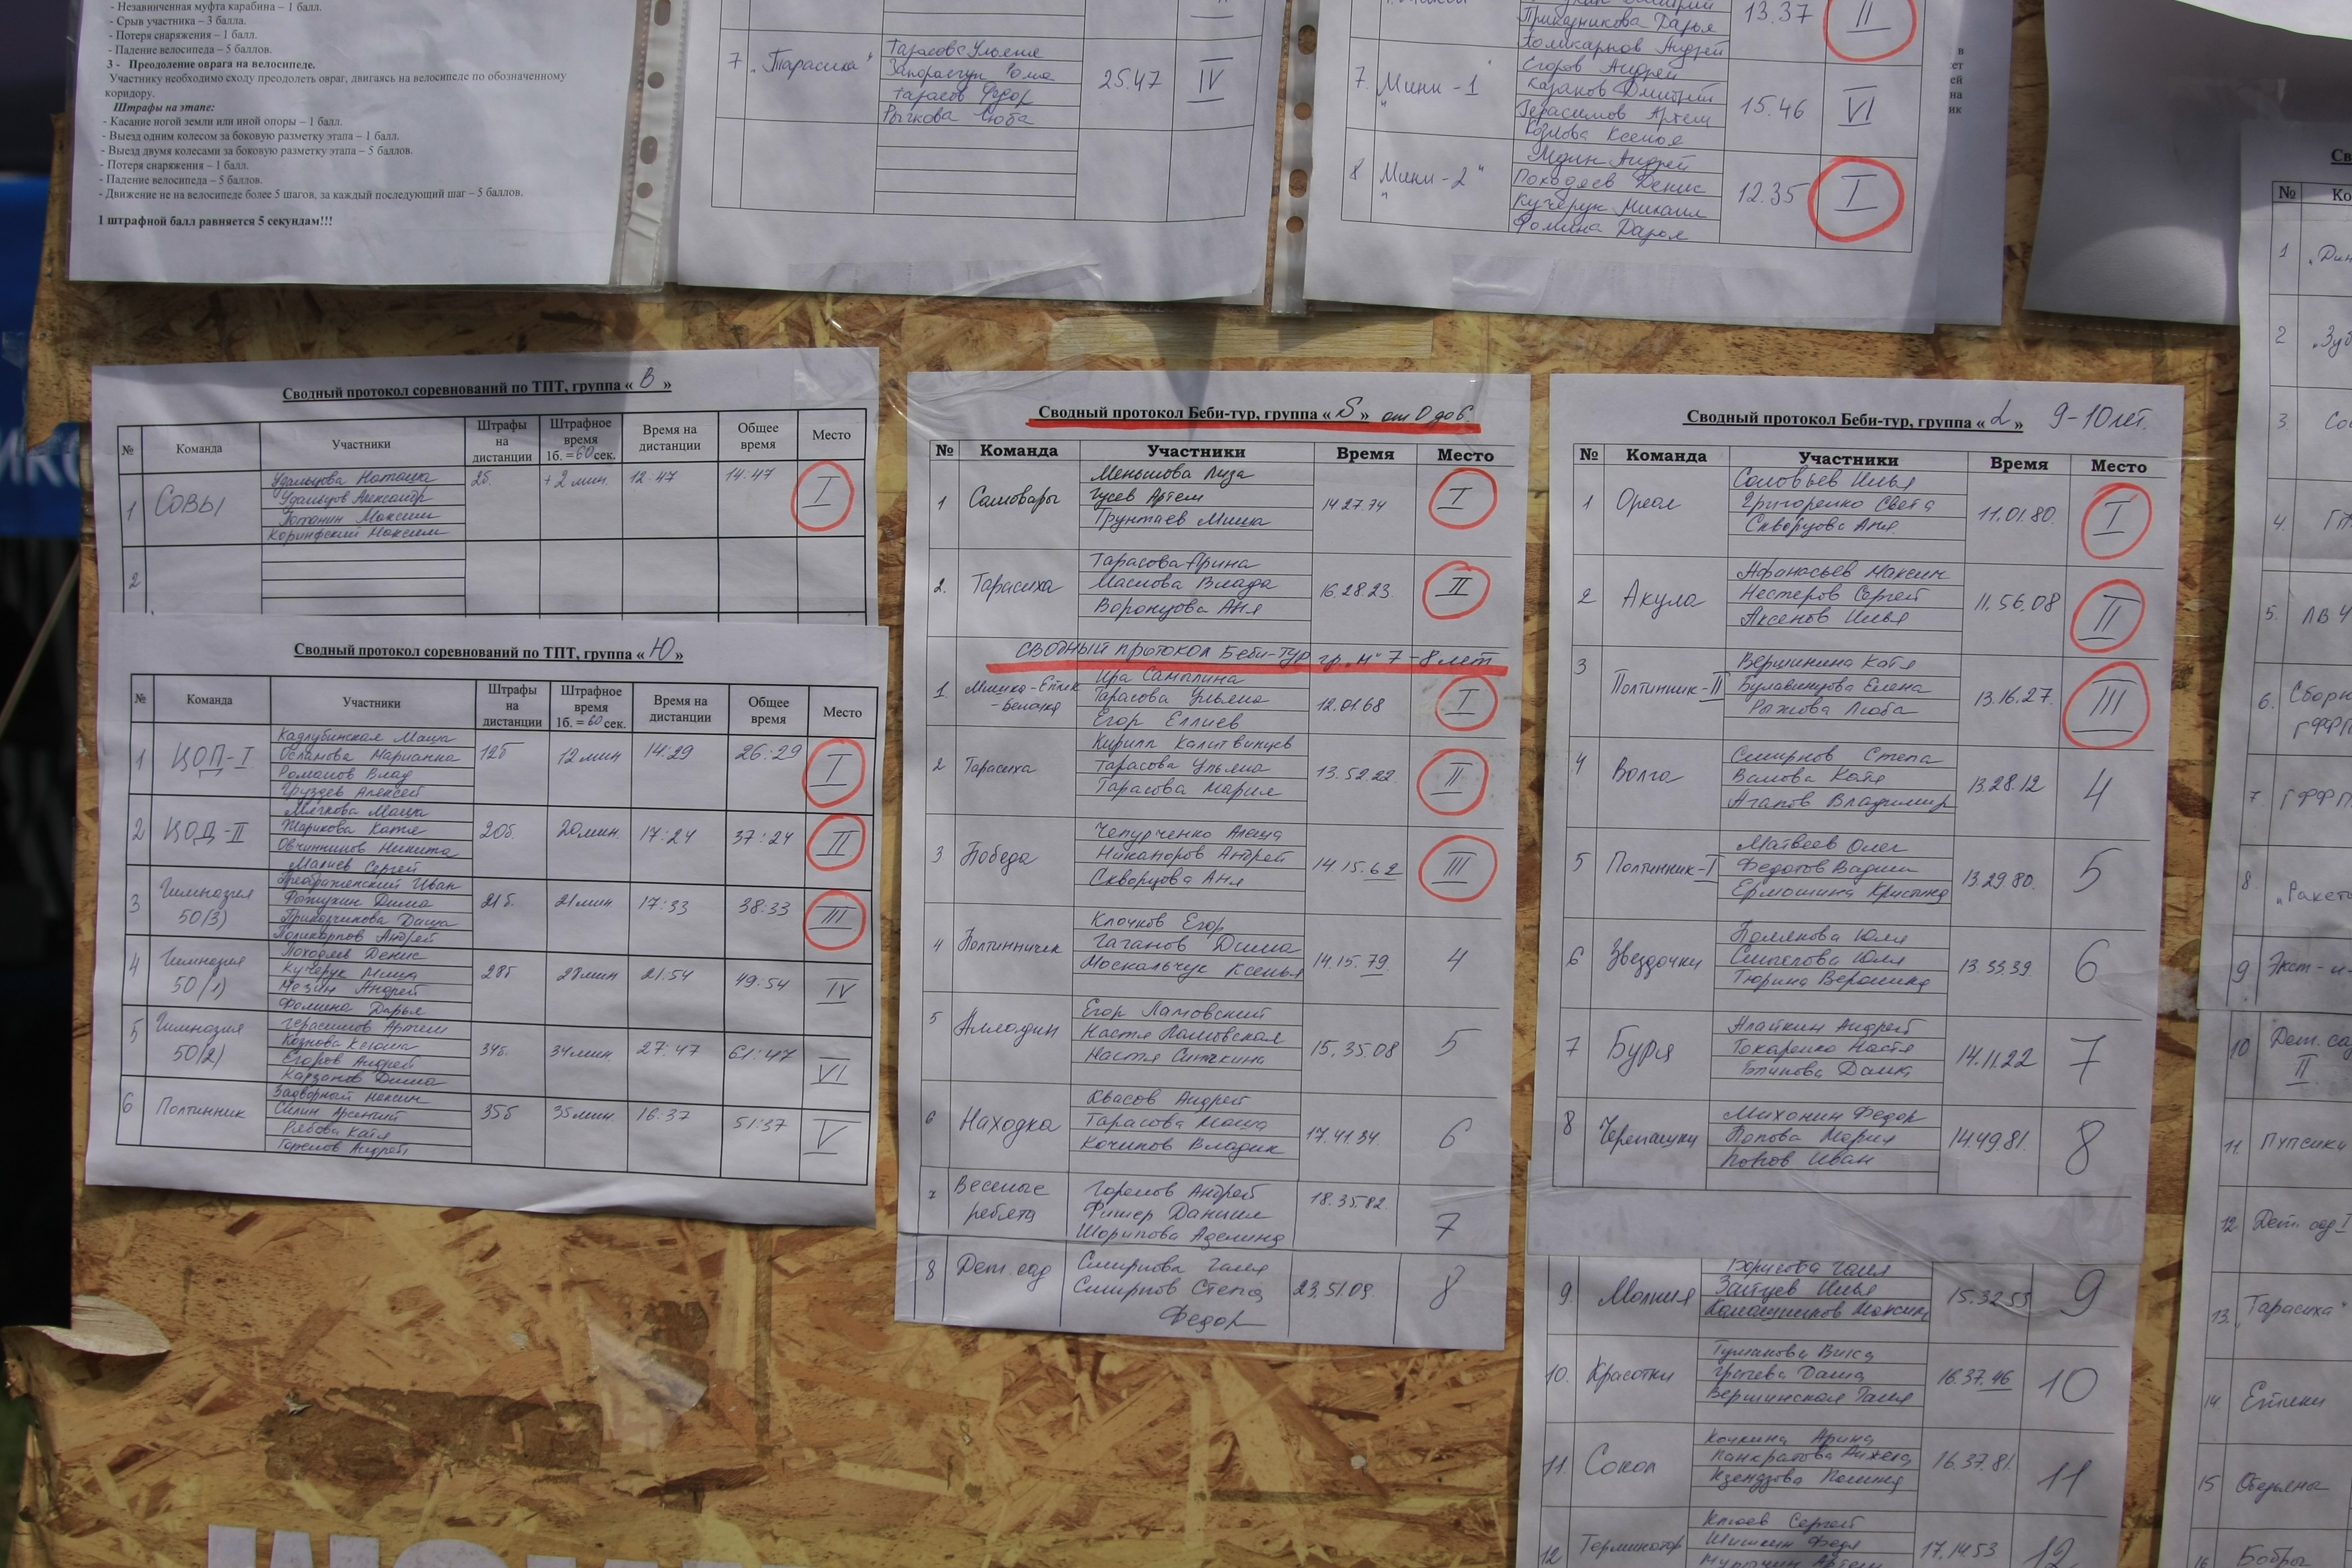 - Незавинченная муфта карабина – 1 балл.
- Срыв участника – 3 балла.
- Потеря снаряжения – 1 балл.
- Падение велосипеда – 5 баллов.
3 - Преодоление оврага на велосипеде.
Участнику необходимо сходу преодолеть овраг, двигаясь на велосипеде по обозначенному
коридору.
Штрафы на этапе:
- Касание ногой земли или иной опоры – 1 балл.
- Выезд одним колесом за боковую разметку этапа – 1 балл.
- Выезд двумя колесами за боковую разметку этапа – 5 баллов.
- Потеря снаряжения – 1 балл.
- Падение велосипеда – 5 баллов.
- Движение не на велосипеде более 5 шагов, за каждый последующий шаг – 5 баллов.
1 штрафной балл равняется 5 секундам!!!
7 „Тарасиха" 25.47 IV
Тарасова Ульяна
Тарасов Фёдор
Рыжкова Люба
13.37 II
Приказчикова Дарья
Поликарпов Андрей
7. „Мини-1" 15.46 VI
Егоров Андрей
Казаков Дмитрий
Герасимов Артем
Козлова Ксенья
8 „Мини-2" 12.35 I
Мезин Андрей
Походяев Денис
Кучерук Михаил
Фомина Дарья
Сводный протокол соревнований по ТПТ, группа « В »
№ Команда Участники Штрафы на дистанции Штрафное время 1б. = 60 сек. Время на дистанции Общее время Место
1 СОВЫ 2б. +2 мин. 12:47 14:47 I
Удальцова Наташа
Удальцов Александр
Потанин Максим
Коринфский Максим
2
Сводный протокол соревнований по ТПТ, группа « Ю »
№ Команда Участники Штрафы на дистанции Штрафное время 1б. = 60 сек. Время на дистанции Общее время Место
1 ЦОД-I 12б 12 мин 14:29 26:29 I
Кадлубинская Маша
Османова Марианна
Романов Влад
Груздев Алексей
2 ЦОД-II 20б. 20мин. 17:24 37:24 II
Мягкова Маша
Жарикова Катя
Овчинников Никита
Малиев Сергей
3 Гимназия 50(3) 21б. 21мин 17:33 38:33 III
Преображенский Иван
Фатухин Дима
Приказчикова Даша
Поликарпов Андрей
4 Гимназия 50(1) 28б 28мин 21:54 49:54 IV
Походяев Денис
Кучерук Миша
Мезин Андрей
Фомина Дарья
5 Гимназия 50(2) 34б. 34мин 27:47 61:47 VI
Герасимов Артем
Козлова Ксюша
Егоров Андрей
Казаков Дима
6 Полтинник 35б 35мин. 16:37 51:37 V
Задворный Максим
Силин Арсений
Рябова Катя
Горелов Андрей
Сводный протокол Беби-тур, группа « S » от 0 до 6.
№ Команда Участники Время Место
1 Самовары 14.27.74 I
Меньшова Лиза
Гусев Артем
Грунтаев Миша
2. Тарасиха 16.28.23. II
Тарасова Арина
Маслова Влада
Воронцова Аня
СВОДНЫЙ ПРОТОКОЛ Беби-тур гр. „М" 7-8 лет
1 Мишка-Ёжик-Белочка 12.01.68 I
Ира Самылина
Тарасова Ульяна
Егор Еллиев
2 Тарасиха 13.52.22. II
Кирилл Калитвинцев
Тарасова Ульяна
Тарасова Мария
3 Победа 14.15.62 III
Чепурченко Алеша
Никаноров Андрей
Скворцова Аня
4 Полтинничек 14.15.79. 4
Клочков Егор
Гаганов Дима
Москальчук Ксенья
5 Алладин 15.35.08 5
Егор Ламовский
Настя Ламовская
Настя Ситкина
6 Находка 17.41.34. 6
Квасов Андрей
Тарасова Маша
Кочипов Владик
7 Веселые ребята 18.35.82. 7
Горелов Андрей
Фишер Даниил
Шарипова Аделина
8 Дет. сад 23.51.09. 8
Смирнова Галя
Смирнов Степа
Федор
Сводный протокол Беби-тур, группа « L » 9-10 лет.
№ Команда Участники Время Место
1 Ореол 11.01.80. I
Соловьев Илья
Григоренко Света
Скворцова Аня.
2 Акула 11.56.08 II
Афанасьев Максим
Нестеров Сергей
Аксенов Илья
3 Полтинник-II 13.16.27. III
Вершинина Катя
Булавинцова Елена
Рыжова Люба
4 Волга 13.28.12 4
Смирнов Степа
Вамова Катя
Агапов Владимир
5 Полтинник-I 13.29.80. 5
Матвеев Олег
Федотов Вадим
Ермошина Кристина
6 Звездочки 13.53.39 6
Полякова Юля
Смыслова Юля
Тюрина Вероника
7 Буря 14.11.22 7
Алайкин Андрей
Токаренко Настя
Блинова Даша
8 Черепашки 14.49.81. 8
Михонин Федор
Попова Мария
Попов Иван
9. Молния 15.32.55 9
Борисова Галя
Зайцев Илья
Калашников Максим
10. Красотки 16.37.46 10
Туманова Вика
Грачева Даша
Вершинская Галя
11. Сокол 16.37.81. 11
Кочкина Арина
Панкратова Анжела
12 Терминатор 17.14.53 12
Клюев Сергей
Шишкин Федя
№
1
2
3.
4.
5.
6. Сборн
7. ГФФП
8. „Ракета
9.
10 Дет. са II
11. Пупсики
12. Дет. сад I
13. „Тарасиха"
14. Ёлики
15
16.